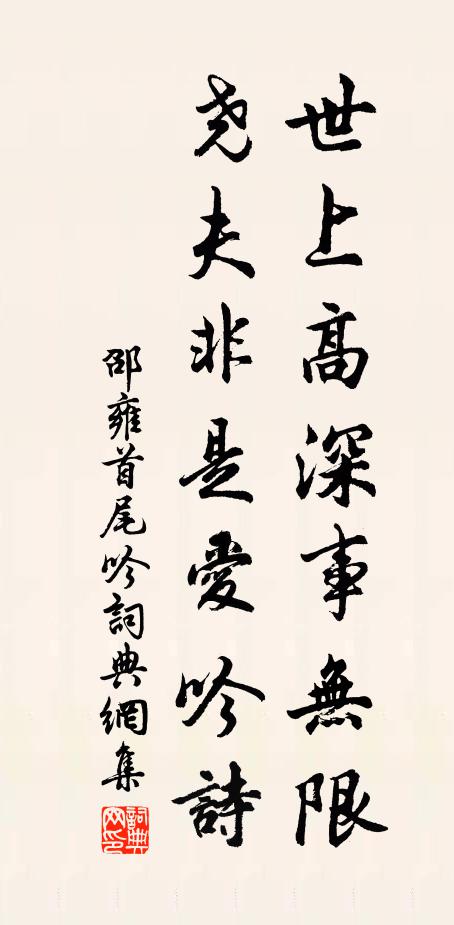 世上高深事無限
尭夫非是愛吟詩
邵雍首尾吟詞典網集
詞典網印